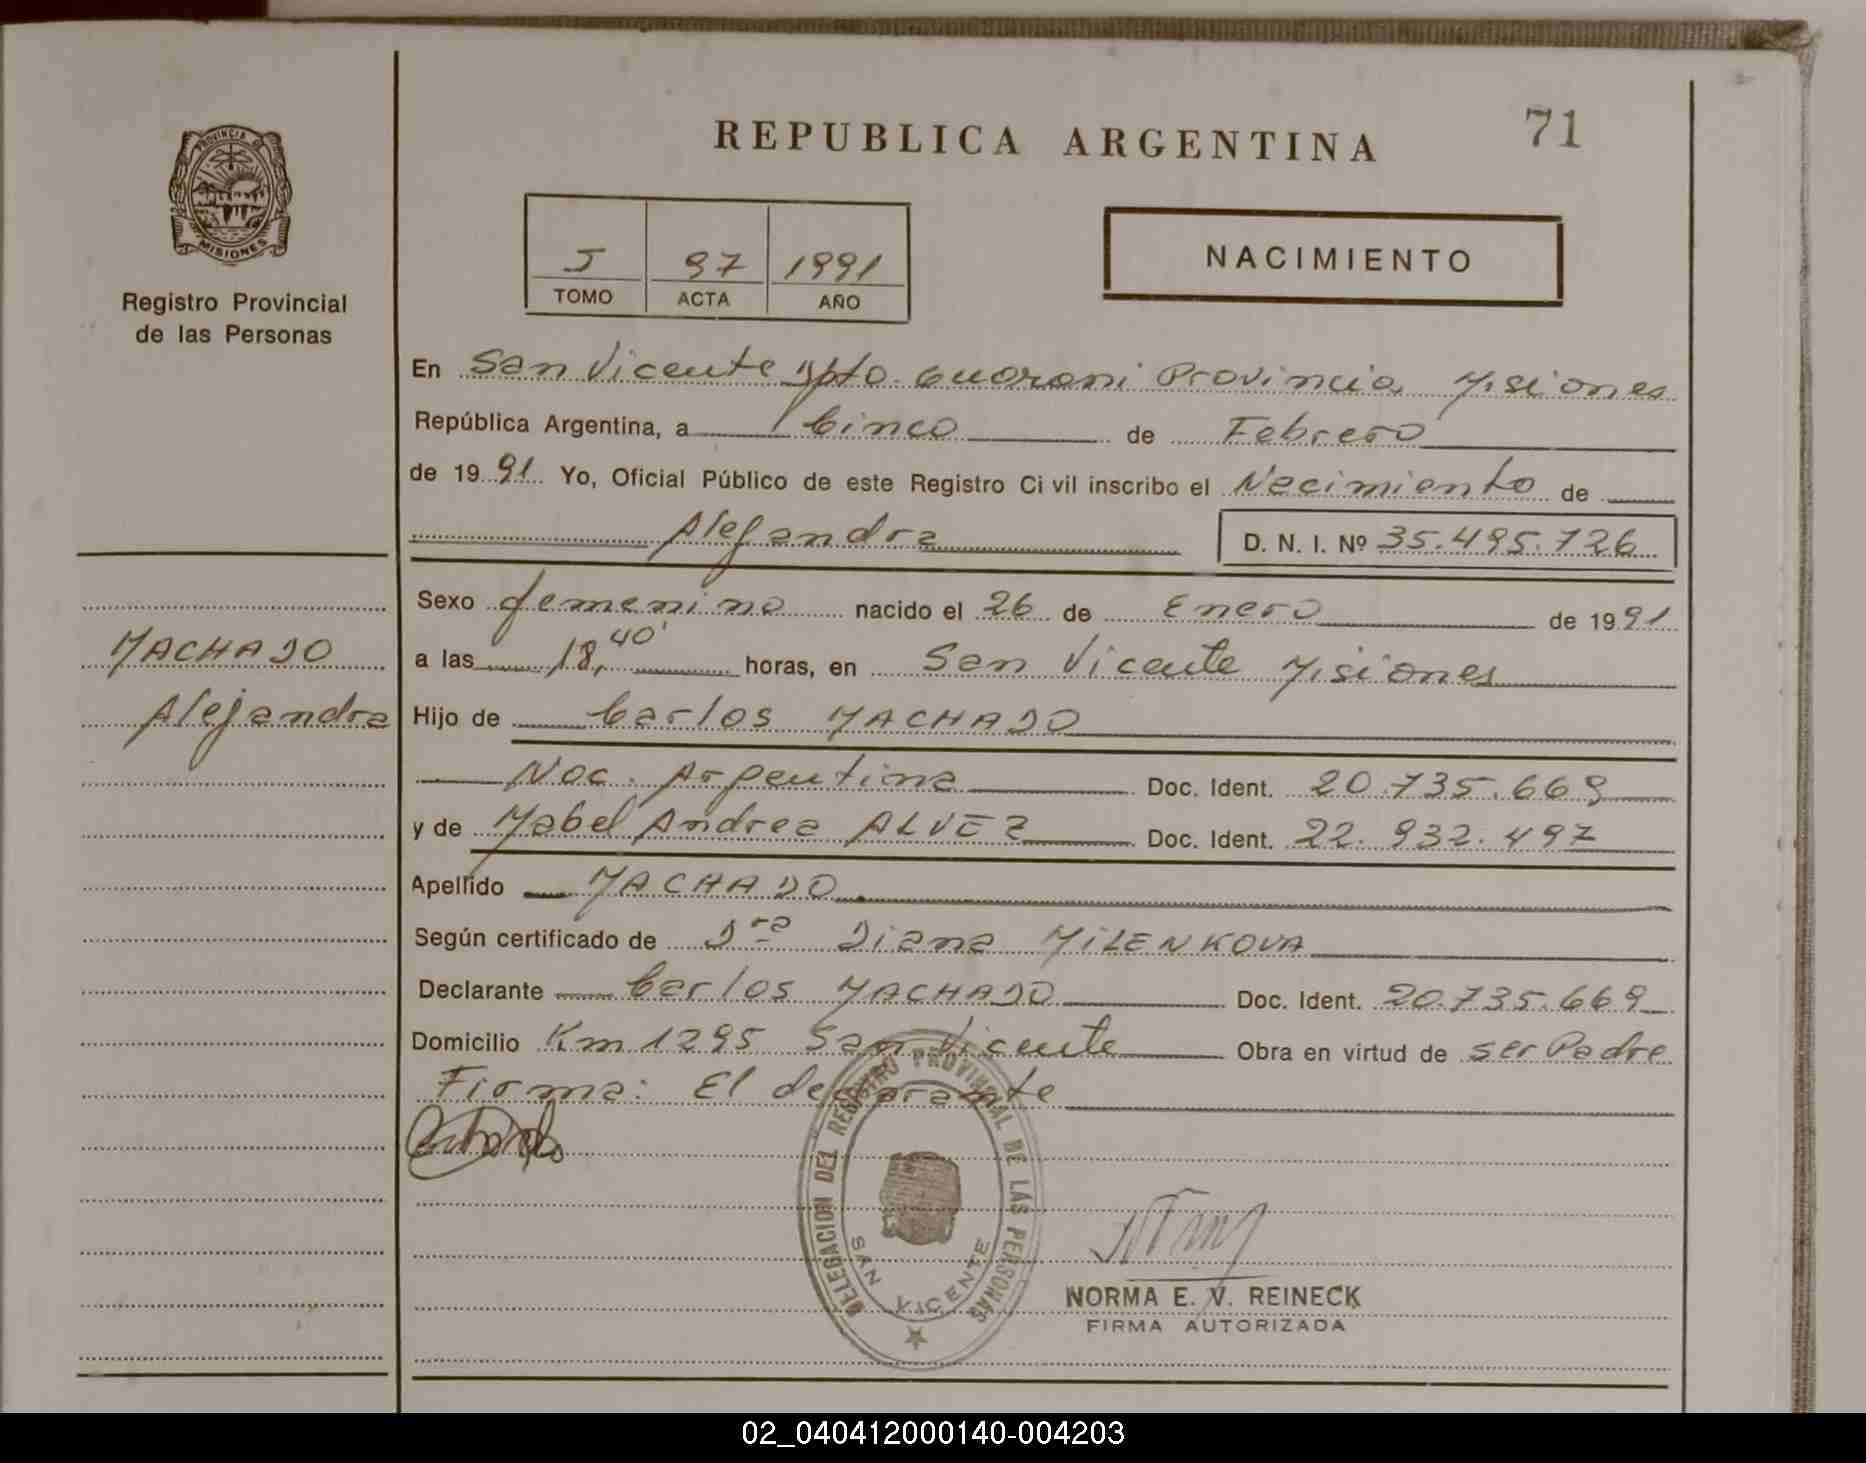 REPUBLICA ARGENTINA
71
PROVINCIA DE
MISIONES
Registro Provincial
de las Personas
J 97 1991
TOMO ACTA AÑO
NACIMIENTO
En San Vicente Dpto. Guarani Provincia Misiones
República Argentina, a Cinco de Febrero
de 1991 Yo, Oficial Público de este Registro Ci vil inscribo el Nacimiento de
Alejandra D. N. I. Nº 35.495.726
Sexo femenino nacido el 26 de Enero de 1991
MACHADO
a las 18,40' horas, en San Vicente Misiones
Alejandra
Hijo de Carlos MACHADO
Nac. Argentina Doc. Ident. 20.735.669
y de Mabel Andrea ALVEZ Doc. Ident. 22.932.497
Apellido MACHADO
Según certificado de Dra Diana MILENKOVA
Declarante Carlos MACHADO Doc. Ident. 20.735.669
Domicilio Km 1295 San Vicente Obra en virtud de ser Padre
Firma: El declarante
DELEGACION DEL REGISTRO PROVINCIAL DE LAS PERSONAS
SAN VICENTE
NORMA E. V. REINECK
FIRMA AUTORIZADA
02_040412000140-004203